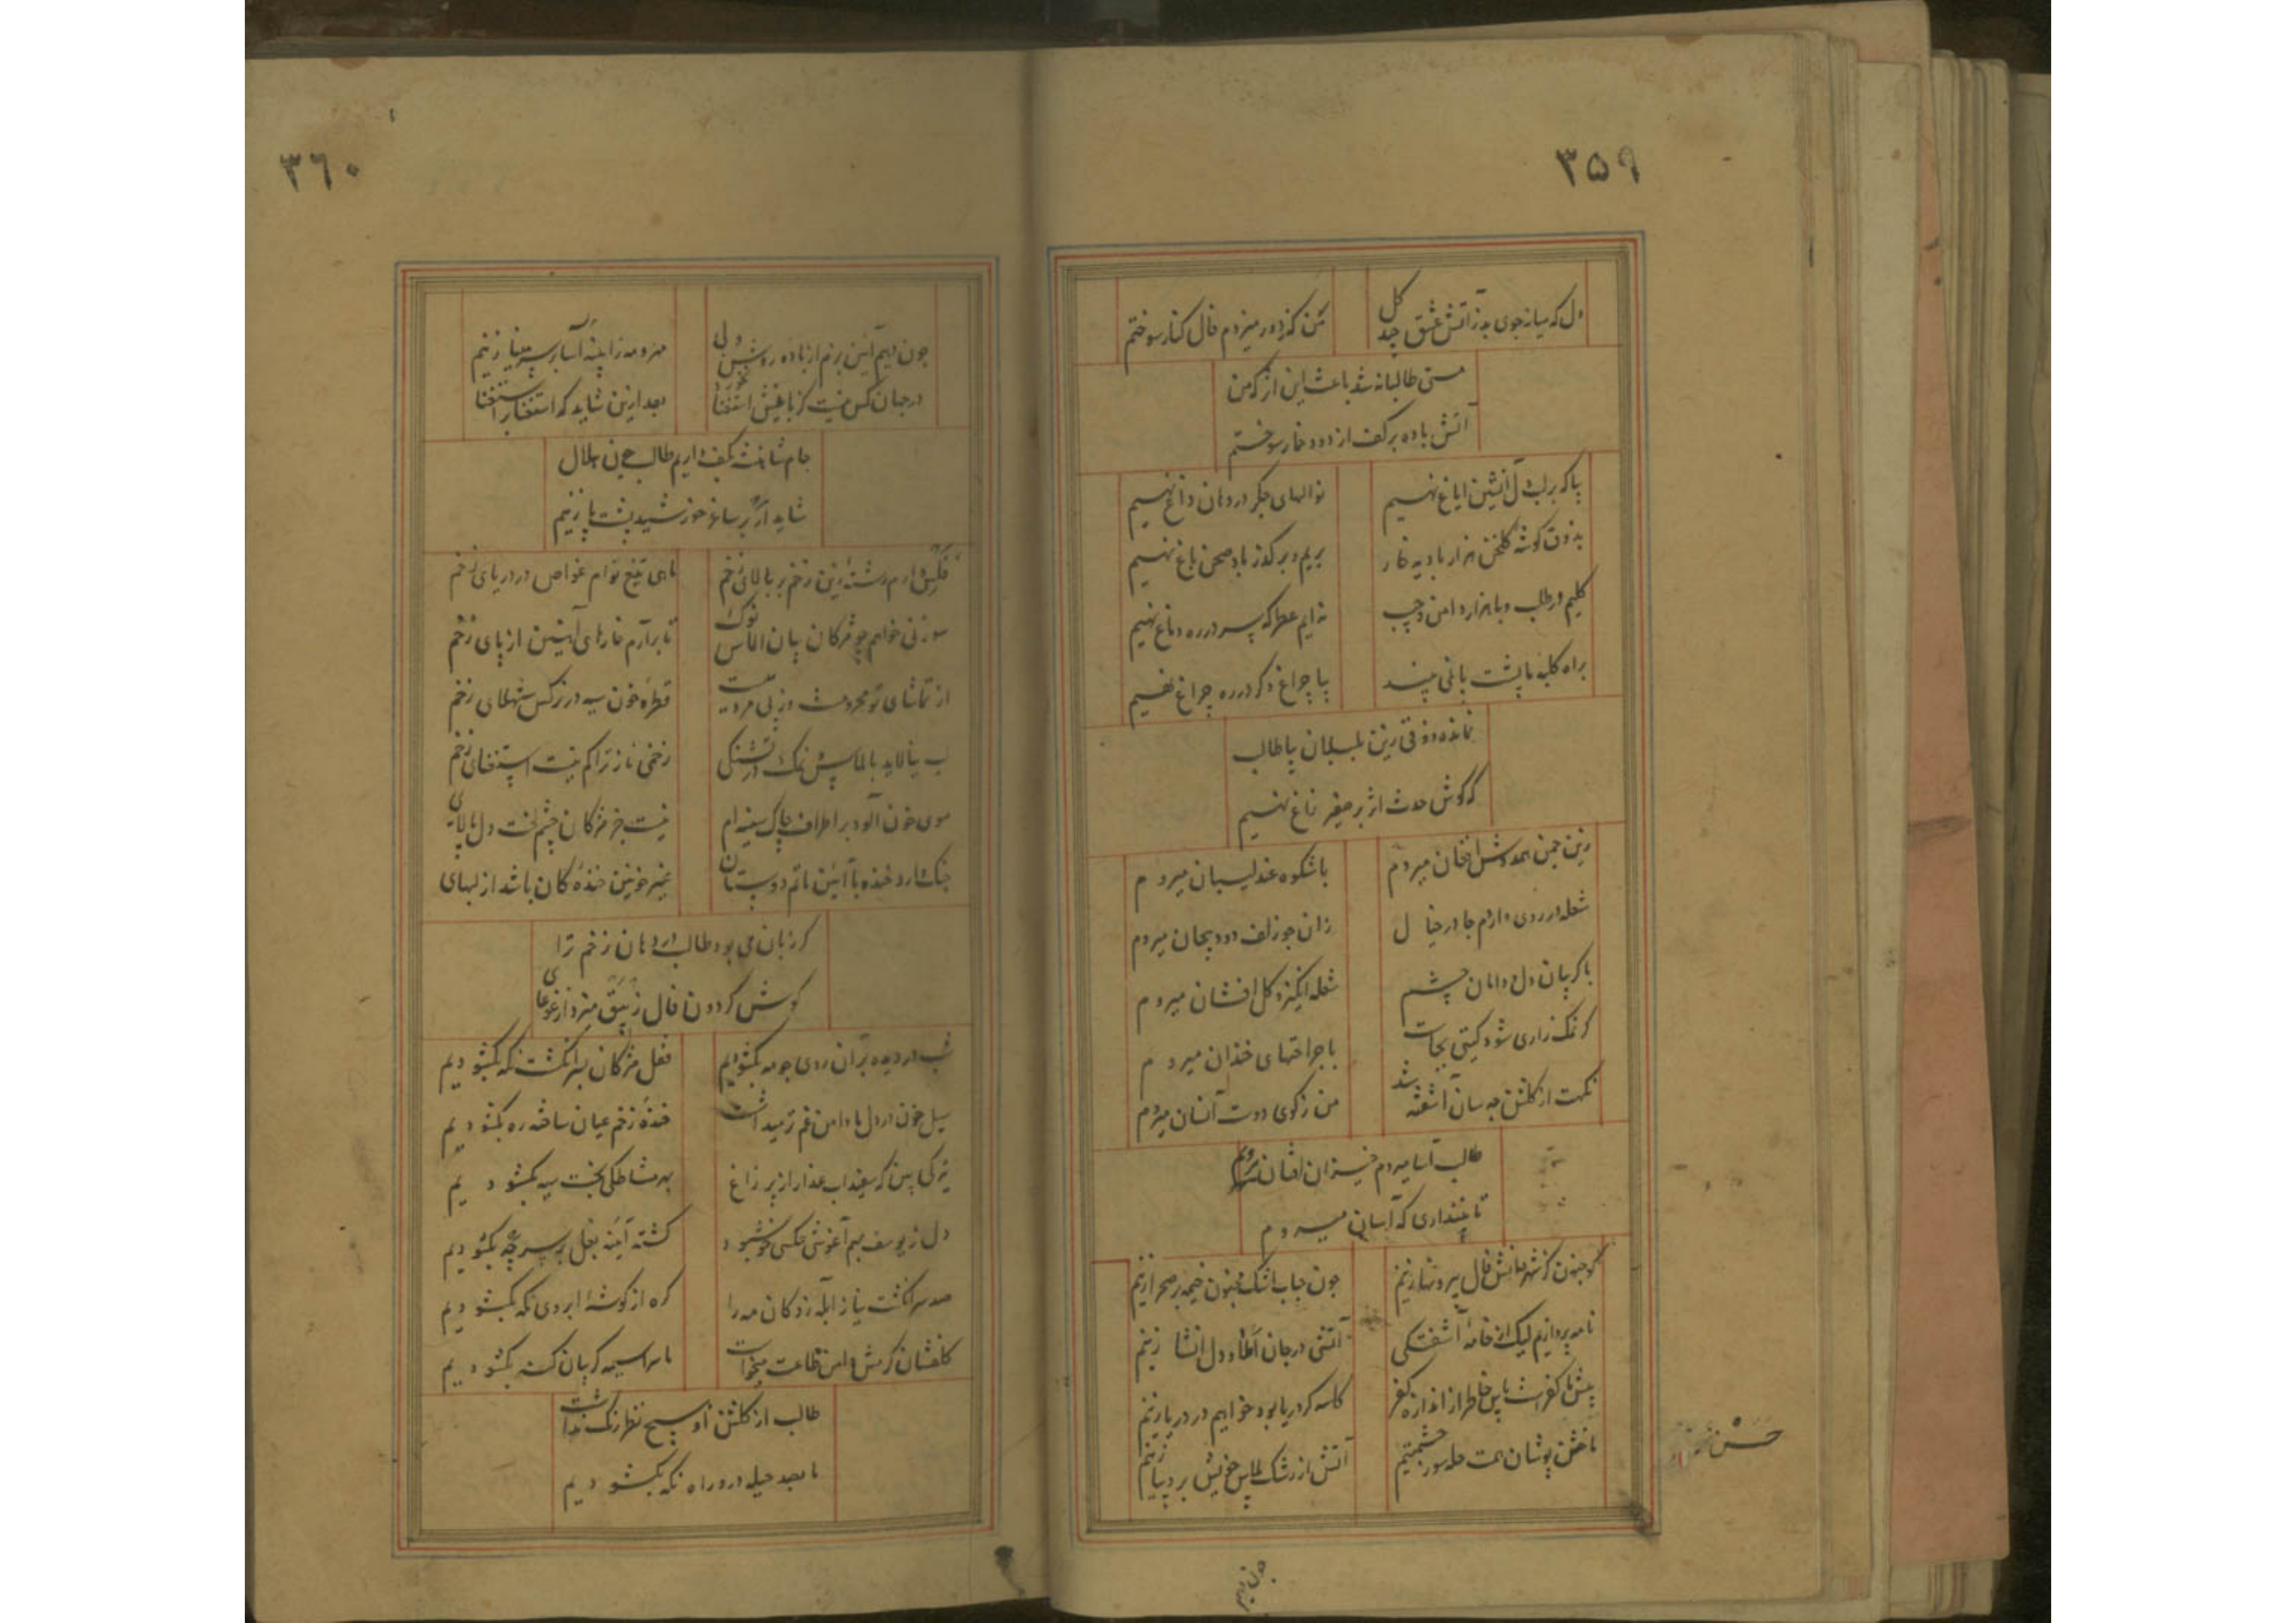 ۳۵۹
دل که میانجوی بد ز آتش عشق چد گل
من که ز دور میزدم فال کنار سوختم
مستی طالبانه شد باعث این اثر که من
آتش باده بر کف از دود خمار سوختم
بیا که بر لب دل آتشین ایاغ نهیم
نوالهای جگر در دهان داغ نهیم
بذوق گوشه گلخن هزار بادیه خار
بریم و بر گذر باد صحن باغ نهیم
کلیم در طلب و با هزار دامن و جیب
نه ایم عطر که بر سر دره دماغ نهیم
براه کلبه ما پشت پائی
بیا چراغ دگر در ره چراغ نهیم
نمانده ذوقی زین بلبلان بیا طالب
که گوش حدث اثر بر صفیر زاغ نهیم
زین چمن همدوش افغان میروم
با شکوه عندلیبان میروم
شعله در روی دارم جا در خیال
زان چو زلف دود پیچان میروم
با گریبان دل و دامان چشم
شعله انگیز و گل افشان میروم
گر نمک زاری شود گیتی بجاست
با جراحتهای خندان میروم
نکهت از گلشن چه سان آشفته شد
من ز کوی دوست آنسان میروم
طالب آسا میروم خیزان افتان میروم
تا نپنداری که آسان میروم
کو جنون کز شهر دانش فال بیرونها زنیم
چون حباب اشک مجنون خیمه بر صحرا زنیم
نامه پردازیم لیک از خامه آشفتگی
آتشی در جان املا و دل انشا زنیم
پیش ما کفر است پاس خاطر از اندازه کفر
کاسه گر دریا بود خواهیم در دریا زنیم
ما خشن پوشان همت حله سوز
آتش از رشک لباس خویش بر دیبا زنیم
چون دیم
۳۶۰
چون دهیم آئین بزم از باده روشن دلی
مهر و مه را پنبه آسا بر سر مینا زنیم
در جهان کس نیست کز باغش استغنا خورد
بعد ازین شاید که استغنا بر استغنا
جام شاهنشه بکف داریم طالب چون هلال
شاید ار بر ساغر خورشید پشت پا زنیم
فکرش دارم رشته زین زخم بر بالای زخم
ماهی تیغ توام غواص در دریای زخم
سوزنی خواهم چو مژگان بتان الماس نوک
تا برآرم خارهای آهنین از پای زخم
از تماشای تو محرومست
قطره خون سیه در نرگس شهلای زخم
لب نیالاید بالماس نمک در تشنگی
زخمی ناز ترا کم نیست استغنای زخم
موی خون آلود بر اطراف چاک سینه ام
نیست جز مژگان چشم لخت دل پالای
جنگ دارد خنده با آئین ماتم دوستان
غیر خونین خنده کان باشد از لبهای
گر زبان می بود طالب در دهان زخم را
گوش گردون فال زیبق میزد از غوغای
شب در دیده بر آن روی چو مه بگشودیم
قفل مژگان بسر انگشت نگه بگشودیم
سیل خون در دل ما دامن غم تر میداشت
خنده زخم عیان ساخته ره بگشودیم
تیرگی بین که سفیداب عذار از پر زاغ
به مشاطگی بخت سیه بگشودیم
دل ز یوسف بهم آغوشی عکسی خوش بود
گشته آینه بغل بر سر چه بگشودیم
صد سر انگشت نیاز آبله زد کان مه را
گره از گوشه ابروی نگه بگشودیم
گلفشان گر مش دامن طاعت میخواست
ما سراسیمه گریبان گنه بگشودیم
طالب از گلشن او هیچ نظر رنگ نداشت
ما بصد حیله درو راه نگه بگشودیم